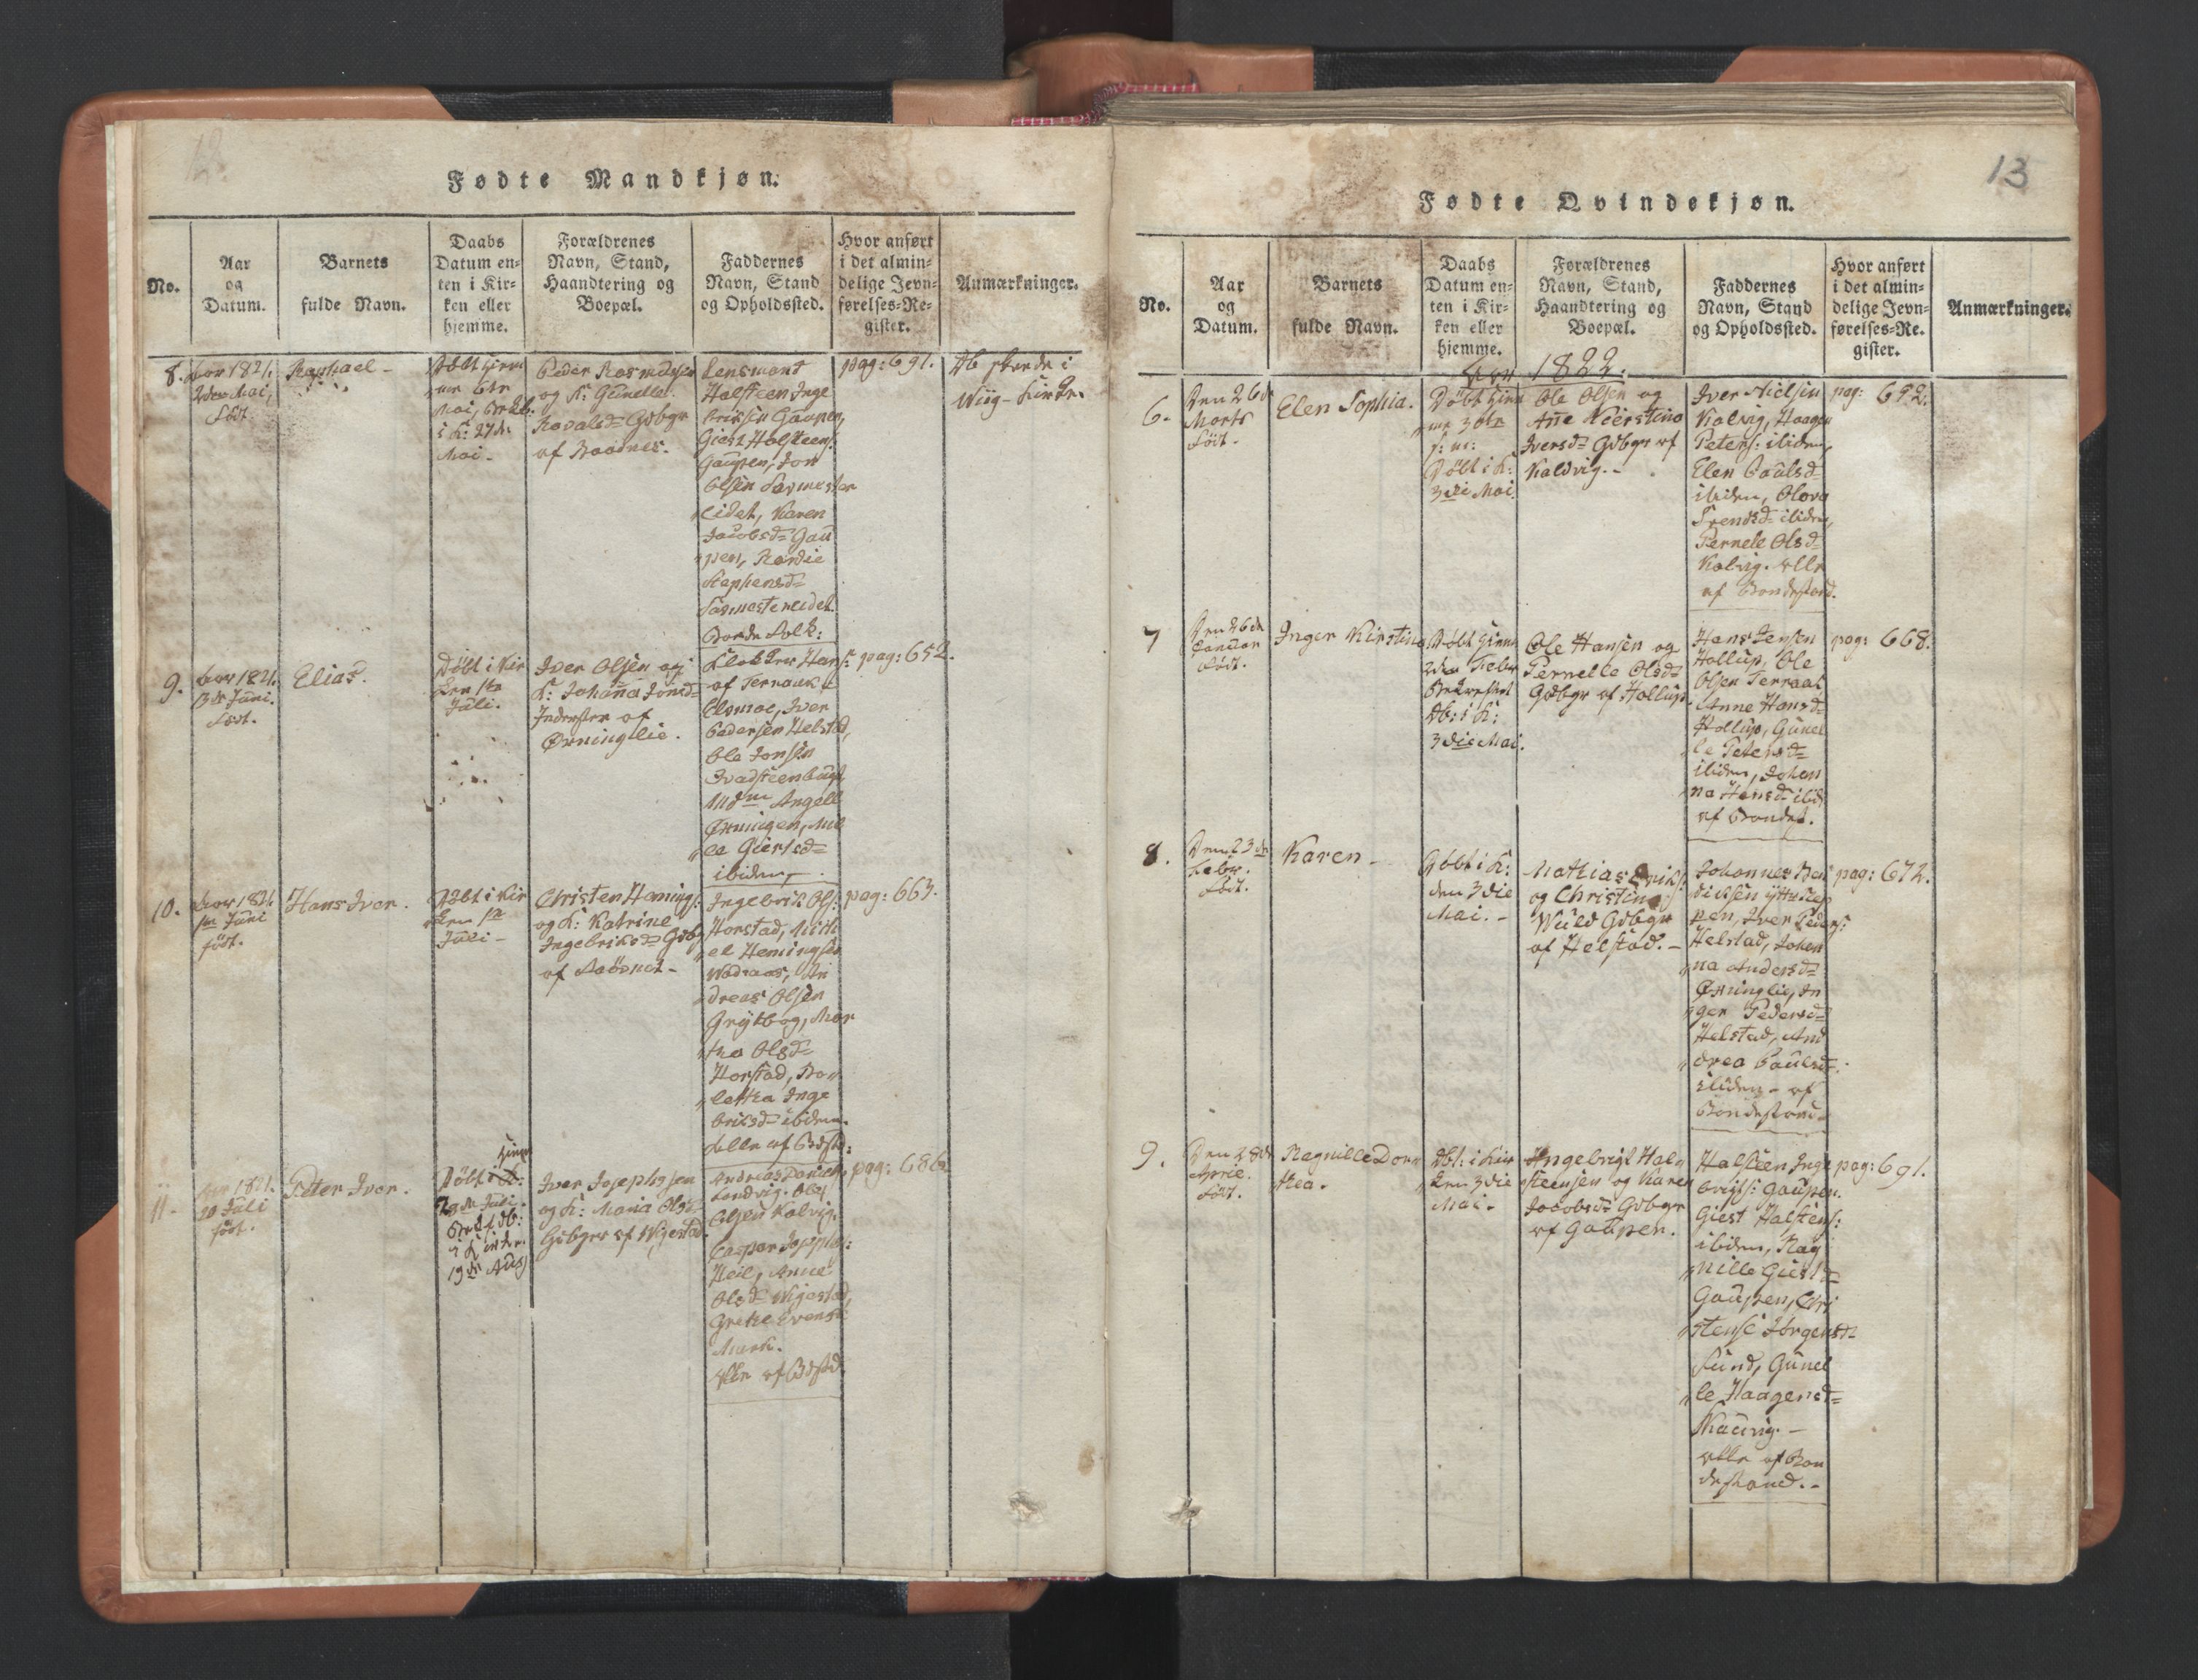 12.
Fødte Mandkjøn.
No.
Aar
og
Datum.
Barnets
fulde Navn.
Daabs
Datum en-
ten i Kir-
ken eller
hjemme.
Forældrenes
Navn, Stand,
Haandtering og
Boepæl.
Faddernes
Navn, Stand
og Opholdssted.
Hvor anført
i det almin-
delige Jevn-
førelses-Re-
gister.
Anmærkninger.
8.
1821.
2den Mai,
Født.
Raphael -
Døbt hiem
me 6te
Mai,
i K: 27de
Mai -
Peder
og K: Gunelle
Gdbgr
af Baadnes.
Lensmand
Halsteen Inge
briksen Gaupen,
Giest Halsteens:
Gaupen, Jon
Olsen Sørmester
eidet, Karen
Jacobsd= Gau
pen,
Stephensd=
Sørmestereidet.
Bonde Folk:
pag: 691.
Db skeede i
Wiig - Kirke.
9.
1821.
3de Juni.
Født.
Elias.
Døbt i Kir
ken 1te
Juli.
Iver Olsen og
K: Johanna Jonsd=
Inderster af
Øxninglie.
Klokker Hans:
af Terraak
Elsmoe, Iver
Pedersen Helstad,
Ole Jonsen
Mdm Angell
Øxningen,
Giertsd=
ibidem,
pag: 652.
10.
1821.
1te Juni
født.
Hans Iver.
Døbt i Kir
ken 1te
Juli -
Christen Hemings:
og K: Katrine
Ingebriksd= Gdbg
af
Ingebrik Ols:
Horstad, Mich
el Hemingsen
An
dreas Olsen
Grytbog, Mar
tha Olsd=
Horstad,
letha Inge
briksd= ibidem.
alle af Bdstd:
pag: 663.
11.
1821.
20 Juli
født.
Peter Iver.
hiem
Døbt i K:
Juli.
Db:
i Kirken
19de Aug
Iver Josephsen
og K: Maria Olsd=
Gdbger af Wigestad.
Andreas Daniels:
Sandvig. Ole
Olsen Kalvig,
Casper Josephs:
Heil, Anne
Olsd= Wigestad,
Grethe Evensd:
Mark.
alle af Bdstd.
pag: 686
13
Fødte Qvindekjøn.
No.
Aar
og
Datum.
Barnets
fulde Navn.
Daabs
Datum en-
ten i Kir-
ken eller
hjemme.
Forældrenes
Navn, Stand,
Haandtering og
Boepæl.
Faddernes
Navn, Stand
og Opholdssted.
Hvor anført
i det almin-
delige Jevn-
førelses-Re-
gister.
Anmærkninger.
Aar 1822.
6.
Den 26de
Marts
Født.
Elen Sophia.
Døbt hiem
me 30te
s: m:
Døbt i K:
3die Mai.
Ole Olsen og
Ane Kierstina
Iversd= Gdbgr af
Kaldvig. -
Iver Nielsen
Kalvig, Haagen
Peters: ibidem,
Elen Paulsd=
ibidem, Olava
Svendsd= ibidem,
Pernele Olsd=
Kalvig. alle
af Bondestand.
pag: 692.
7
Den 26de
Januar
Født.
Inger Kirstina
Døbt hiem
2den Febr
Bekræftet
Db: i K:
3die Mai.
Ole Hansen og
Pernelle Olsd=
Gdbgr af Hollup.
Hans Jensen
Hollup, Ole
Olsen Terraak
Anne Hansd=
Hollup, Gunel
le Petersd=
ibidem, Johan
na Hansd= ibid
af Bondest.
pag: 668.
8.
Den 23de
Febr.
Født.
Karen -
Døbt i K:
den 3die
Mai. -
Mathias Eriks:
og Christina
Wuld Gdbgr
af Helstad. -
Johannes Ben
dicksen
pen, Iver Peders:
Helstad, Johan
na Andersd=
Øxninglie, In
ger Pedersd=
Helstad, And
drea Paulsd=
ibidem - af
Bondestand -
pag: 672.
9.
Den 28de
April
Født.
Ragnille Doro
thea.
Dbt: i Kir
ken 3die
Mai -
Ingebrigt Hal
steensen og Karen
Jacobsd= Gdbgr
af Gaupen.
Halsteen Inge
brigts: Gaupen.
Giest Halstens:
ibidem, Rag
nille Giestd=
Gaupen, Chri
stense Jørgensd=
Sund, Gunel
le Haagensd=
Kalvig -
alle af Bon
destand. -
pag: 691.